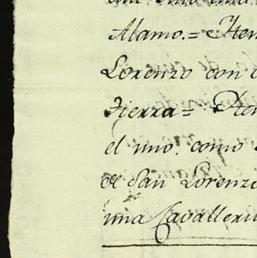 Alamo.= Iten
Lorenzo con
Tierra= Iten
el uno. como
de San Lorenzo
una Cavalleri